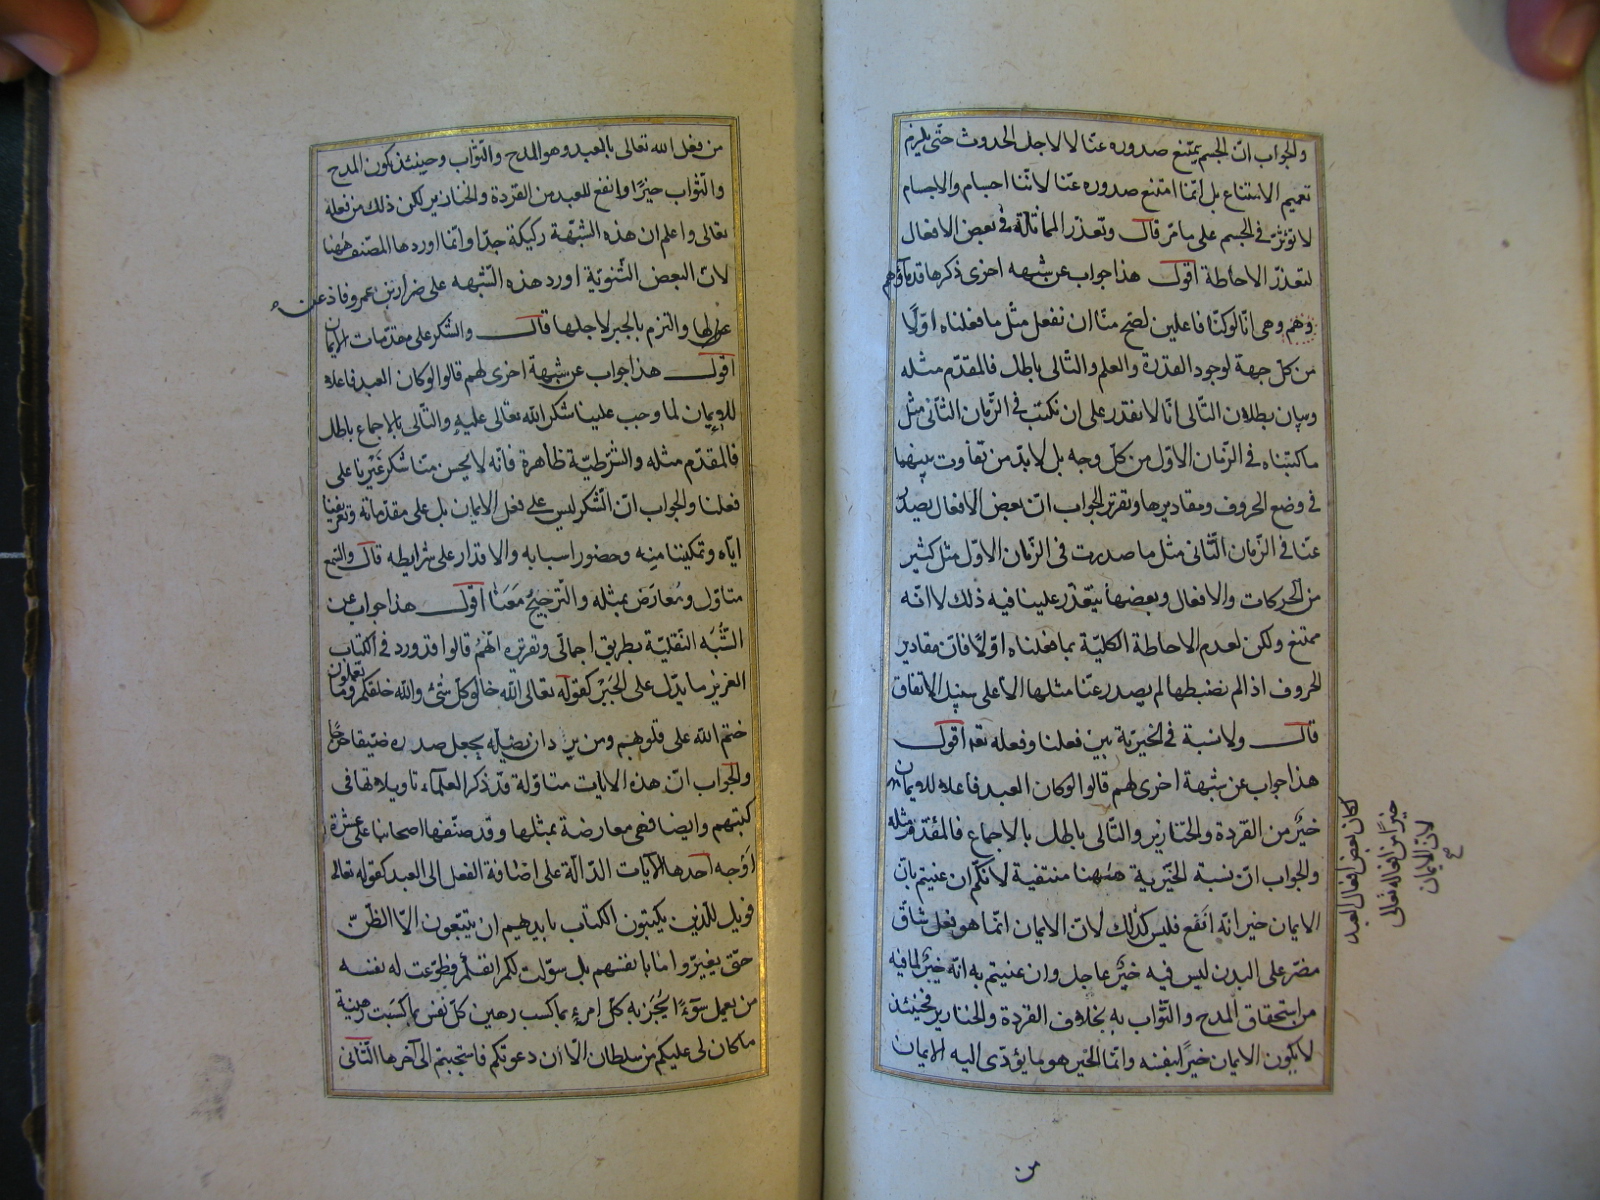 والجواب انّ الجسم يمتنع صدوره عنّا لا لاجل الحدوث حتّى يلزم
تعميم الامتناع بل انّما امتنع صدوره عنّا لانّنا اجسام والاجسام
لا تؤثّر في الجسم على ما مرّ قال وتعذّر المماثلة في بعض الافعال
لتعذّر الاحاطة اقول هذا جواب عن شبهه اخرى ذكرها قدماؤهم
وهى انّا لو كنّا فاعلين لصحّ منّا ان نفعل مثل ما فعلناه اوّلًا
من كلّ جهة لوجود القدرة والعلم والتّالى باطل فالمقدّم مثله
وبيان بطلان التّالى انّا لا نقدر على ان نكتب في الزّمان الثّانى مثل
ما كتبناه في الزّمان الاوّل من كلّ وجه بل لا بدّ من تفاوت بينهما
في وضع الحروف ومقاديرها وتقرير الجواب انّ بعض الافعال يصدر
عنّا في الزّمان الثّانى مثل ما صدرت في الزّمان الاوّل مثل كثير
من الحركات والافعال وبعضها يتعذّر علينا فيه ذلك لا انّه
ممتنع ولكن لعدم الاحاطة الكليّة بما فعلناه اوّلًا فانّ مقادير
الحروف اذا لم نضبطها لم يصدر عنّا مثلها الّا على سبيل الاتفاق
قال ولا نسبة في الخيريّة بين فعلنا وفعله تعالى اقول
هذا جواب عن شبهة اخرى لهم قالوا لو كان العبد فاعلا للايمان
خيرٌ من القردة والخنازير والتّالى باطل بالاجماع فالمقدّم مثله
والجواب انّ نسبة الخيّرية ههنا منتفية لانّكم ان عنيتم بانّ
الايمان خير انّه انفع فليس كذلك لانّ الايمان انّما هو فعل شاقّ
مضرّ على البدن ليس فيه خيرٌ عاجل وان عنيتم به انّه خيرٌ لما فيه
من استحقاق المدح والثّواب به بخلاف القردة والخنازير فحينئذ
لا يكون الايمان خيرًا بنفسه وانّما الخير هو ما يؤدّى اليه الايمان
لكان بعض افعال العبد
خيرًا من افعاله تعالى
لانّ الايمان
من
من فعل الله تعالى بالعبد وهو المدح والثّواب وحينئذ يكون المدح
والثّواب خيرًا وانفع للعبد من القردة والخنازير لكن ذلك من فعله
تعالى واعلم ان هذه الشبّهة ركيكة جدّا وانّما اوردها المصّنف ههنا
لانّ البعض الثّنويّة اورد هذه الشّبهه على ضرار بن عمرو فاذعن
لها والتزم بالجبر لاجلها قال والشّكر على مقدّمات الايمان
اقول هذا جواب عن شبهة اخرى لهم قالوا لو كان العبد فاعلا
للايمان لما وجب علينا شكر الله تعالى عليه والتّالى بالاجماع باطل
فالمقدّم مثله والشّرطيّة ظاهرة فانّه لا يحسن منّا شكر غيرنا على
فعلنا والجواب انّ الشّكر ليس على فعل الايمان بل على مقدّماته وتعريفنا
ايّاه وتمكيننا منه وحضور اسبابه والاقدار على شرايطه قال والسّمع
متاوّل ومُعارَض بمثله والتّرجيح معنا اقول هذا جواب عن
الشُّبَه النّقليّة بطريق اجمالى وتقريره انّهم قالوا قد ورد في الكتاب
العزيز ما يدّل على الجَبْر كقوله تعالى الله خالق كلّ شئ والله خلقكم وما تعملون
ختم الله على قلوبهم ومن يرد ان يضلّه يجعل صدره ضيّقا حرجًا
والجواب انّ هذه الايات متاوّلة قد ذكر العلماء تاويلاتها فى
كتبهم وايضا فهى معارضة بمثلها وقد صنّفها اصحابنا على عشرة
اَوْجه احدها الآيات الدّالّة على اضافة الفعل الى العبد كقوله تعالى
فويل للّذين يكتبون الكتاب بايديهم ان يتبّعون الاّ الظّنّ
حتى يغيّروا ما بانفسهم بل سوّلت لكم انفسكم فطوّعت له نفسه
من يعمل سوءًا يُجْزَ به كلّ امرءٍ بما كسب رهين كلّ نفس بما كسبت رهينة
ما كان لى عليكم من سلطان الّا ان دعوتكم فاستجبتم الى آخرها الثّانى